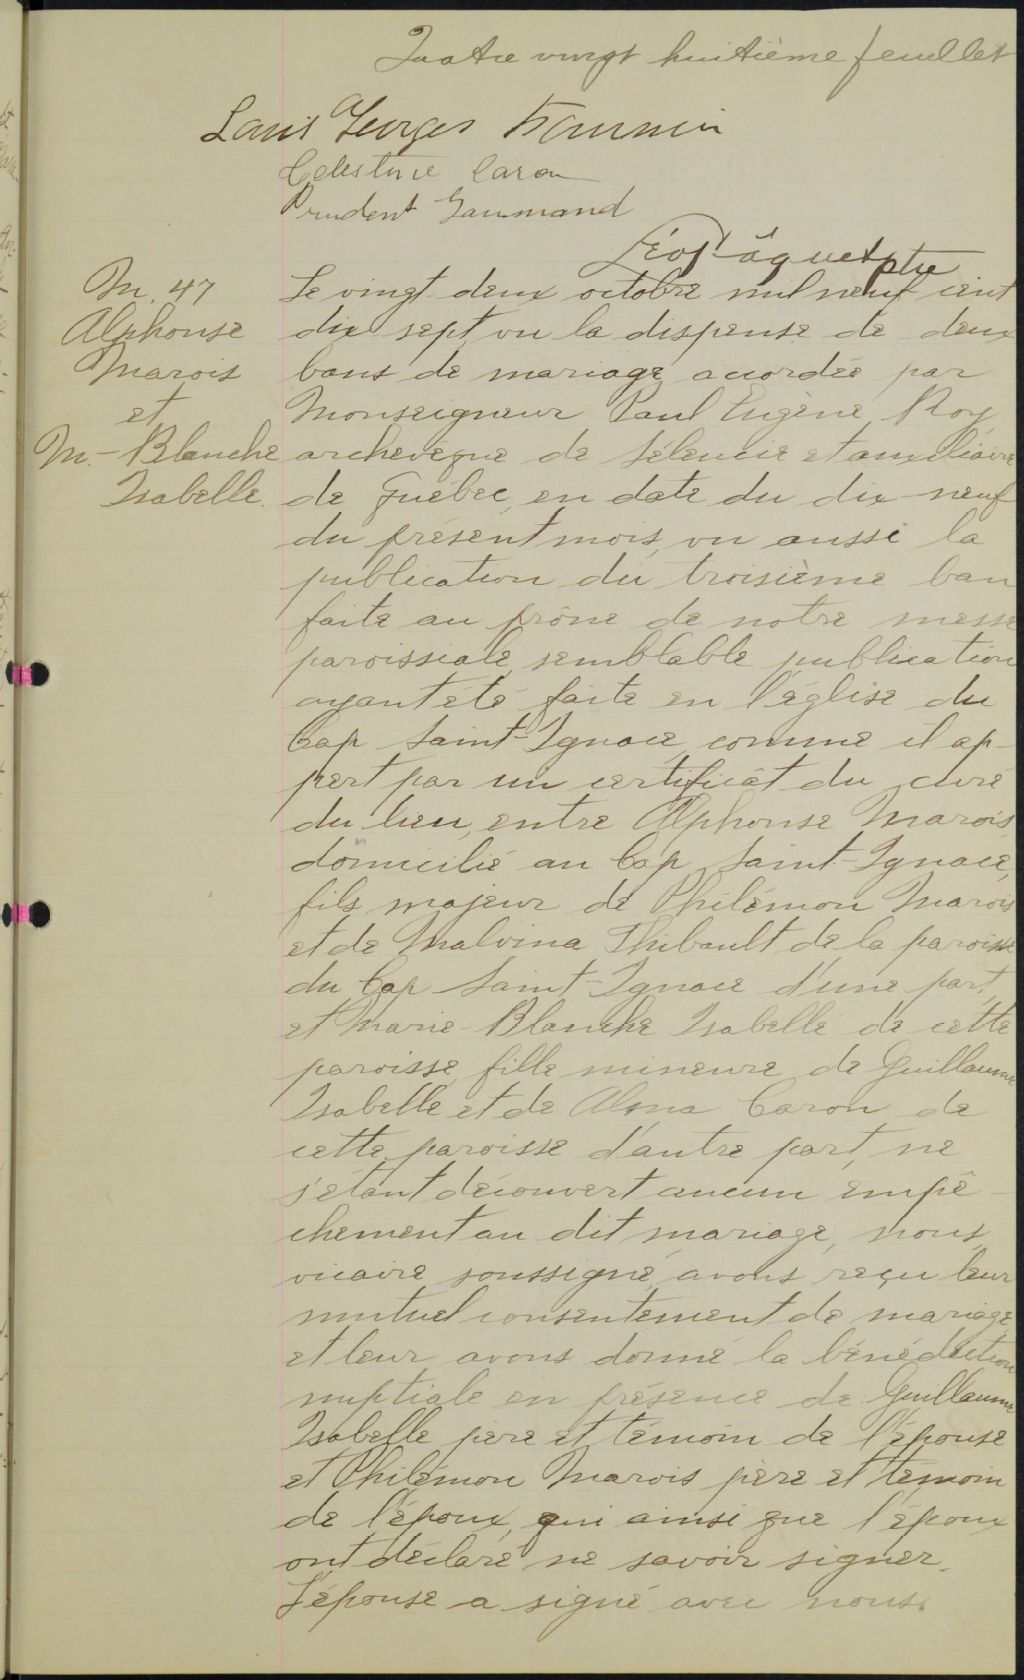 Quatre vingt huitième feuillet
Louis Georges Fournier
Celestine Caron
Prudent Gaumand
Léo Pâquet ptre
M. 47
Alphonse
Marois
et
M.-Blanche
Isabelle.
Le vingt-deux octobre mil neuf cent
dix sept, vu la dispense de deux
bans de mariage accordée par
Monseigneur Paul Eugène Roy
archevêque de Séleucie et auxiliaire
de Québec, en date du dix-neuf
du présent mois, vu aussi la
publication du troisième ban
faite au prône de notre messe
paroissiale, semblable publication
ayant été faite en l'église du
Cap Saint-Ignace, comme il ap-
pert par un certificat du curé
du lieu, entre Alphonse Marois,
domicilié au Cap Saint-Ignace,
fils majeur de Philémon Marois
et de Malvina Thibault de la paroisse
du Cap Saint-Ignace d'une part,
et Marie-Blanche Isabelle de cette
paroisse, fille mineure de Guillaume
Isabelle et de Alma Caron de
cette paroisse d'autre part, ne
s'étant découvert aucun empê-
chement au dit mariage, nous,
vicaire soussigné, avons reçu leur
mutuel consentement de mariage
et leur avons donné la bénédiction
nuptiale en présence de Guillaume
Isabelle père et témoin de l'épouse
et Philémon Marois père et témoin
de l'époux, qui ainsi que l'époux
ont déclaré ne savoir signer.
L'épouse a signé avec nous.